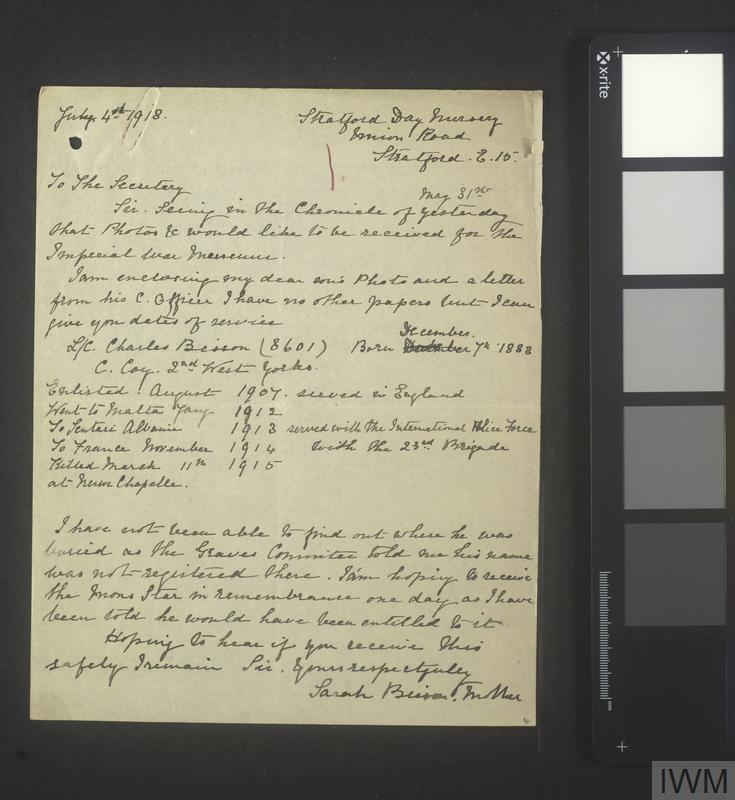 July 4th 1918.
Stratford Day Nursery
Union Road
Stratford. E. 15.
To The Secretery
May 31st
Sir. Seeing in the Chronicle of yesterday
that Photos &c would like to be received for the
Imperial War Meuseum.
I am enclosing my dear son's Photo and a letter
from his C. Officer I have no other papers but I can
give you dates of service
December.
L/C. Charles Bisson (8601) Born 7th 1888
C. Coy. 2nd West Yorks.
Enlisted. August 1907. served in England
Went to Malta Jany 1912
To Scutari Albania 1913 served with the International Police Force
To France November 1914 with the 23rd Brigade
Killed March 11th 1915
at Neuve Chapelle.
I have not been able to find out where he was
buried as the Graves Committee told me his name
was not registered there. I am hoping to receive
the Mons Star in remembrance one day as I have
been told he would have been entitled to it
Hoping to hear if you receive this
safely I remain Sir. Yours respectfully
Sarah Bisson. Mother
4
x-rite
mm
IWM